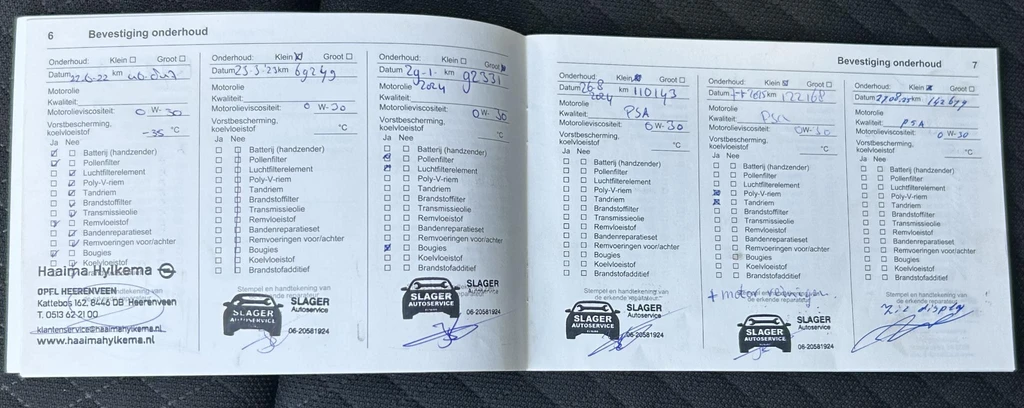 6 Bevestiging onderhoud
Onderhoud: Klein Groot
Datum 22-6-22 km
Motorolie
Kwaliteit:
Motorolieviscositeit: 0 W-30
Vorstbescherming,
koelvloeistof -35 °C
Ja Nee
Batterij (handzender)
Pollenfilter
Luchtfilterelement
Poly-V-riem
Tandriem
Brandstoffilter
Transmissieolie
Remvloeistof
Bandenreparatieset
Remvoeringen voor/achter
Bougies
Koelvloeistof
Haaima Hylkema
OPEL HEERENVEEN
Kattebos 162, 8446 DB Heerenveen
T. 0513 62 21 00
klantenservice@haaimahylkema.nl
www.haaimahylkema.nl
Onderhoud: Klein Groot
Datum 23-3-'23 km 69249
Motorolie
Kwaliteit:
Motorolieviscositeit: 0 W-30
Vorstbescherming,
koelvloeistof °C
Ja Nee
Batterij (handzender)
Pollenfilter
Luchtfilterelement
Poly-V-riem
Tandriem
Brandstoffilter
Transmissieolie
Remvloeistof
Bandenreparatieset
Remvoeringen voor/achter
Bougies
Koelvloeistof
Brandstofadditief
Stempel en handtekening van
SLAGER
AUTOSERVICE
SLAGER
Autoservice
06-20581924
Onderhoud: Klein Groot
Datum 29-1-2024 km 92331
Motorolie
Kwaliteit:
Motorolieviscositeit: 0W-30
Vorstbescherming,
koelvloeistof °C
Ja Nee
Batterij (handzender)
Pollenfilter
Luchtfilterelement
Poly-V-riem
Tandriem
Brandstoffilter
Transmissieolie
Remvloeistof
Bandenreparatieset
Remvoeringen voor/achter
Bougies
Koelvloeistof
Brandstofadditief
SLAGER
AUTOSERVICE
SLAGER
06-20581924
Bevestiging onderhoud 7
Onderhoud: Klein Groot
Datum 26-8 2024 km 110143
Motorolie
Kwaliteit: PSA
Motorolieviscositeit: 0W-30
Vorstbescherming,
koelvloeistof °C
Ja Nee
Batterij (handzender)
Pollenfilter
Luchtfilterelement
Poly-V-riem
Tandriem
Brandstoffilter
Transmissieolie
Remvloeistof
Bandenreparatieset
Remvoeringen voor/achter
Bougies
Koelvloeistof
Brandstofadditief
Stempel en handtekening van
de erkende reparateur:
SLAGER
AUTOSERVICE
SLAGER
Autoservice
06-20581924
Onderhoud: Klein Groot
Datum km 122168
Motorolie
Kwaliteit: PSA
Motorolieviscositeit: 0W-30
Vorstbescherming,
koelvloeistof °C
Ja Nee
Batterij (handzender)
Pollenfilter
Luchtfilterelement
Poly-V-riem
Tandriem
Brandstoffilter
Transmissieolie
Remvloeistof
Bandenreparatieset
Remvoeringen voor/achter
Bougies
Koelvloeistof
Brandstofadditief
+ motor reinigen
SLAGER
AUTOSERVICE
SLAGER
Autoservice
06-20581924
Onderhoud: Klein Groot
Datum km 142679
Motorolie
Kwaliteit: PSA
Motorolieviscositeit: 0 W-30
Vorstbescherming,
koelvloeistof °C
Ja Nee
Batterij (handzender)
Pollenfilter
Luchtfilterelement
Poly-V-riem
Tandriem
Brandstoffilter
Transmissieolie
Remvloeistof
Bandenreparatieset
Remvoeringen voor/achter
Bougies
Koelvloeistof
Brandstofadditief
Stempel en handtekening van
de erkende reparateur:
Zie display